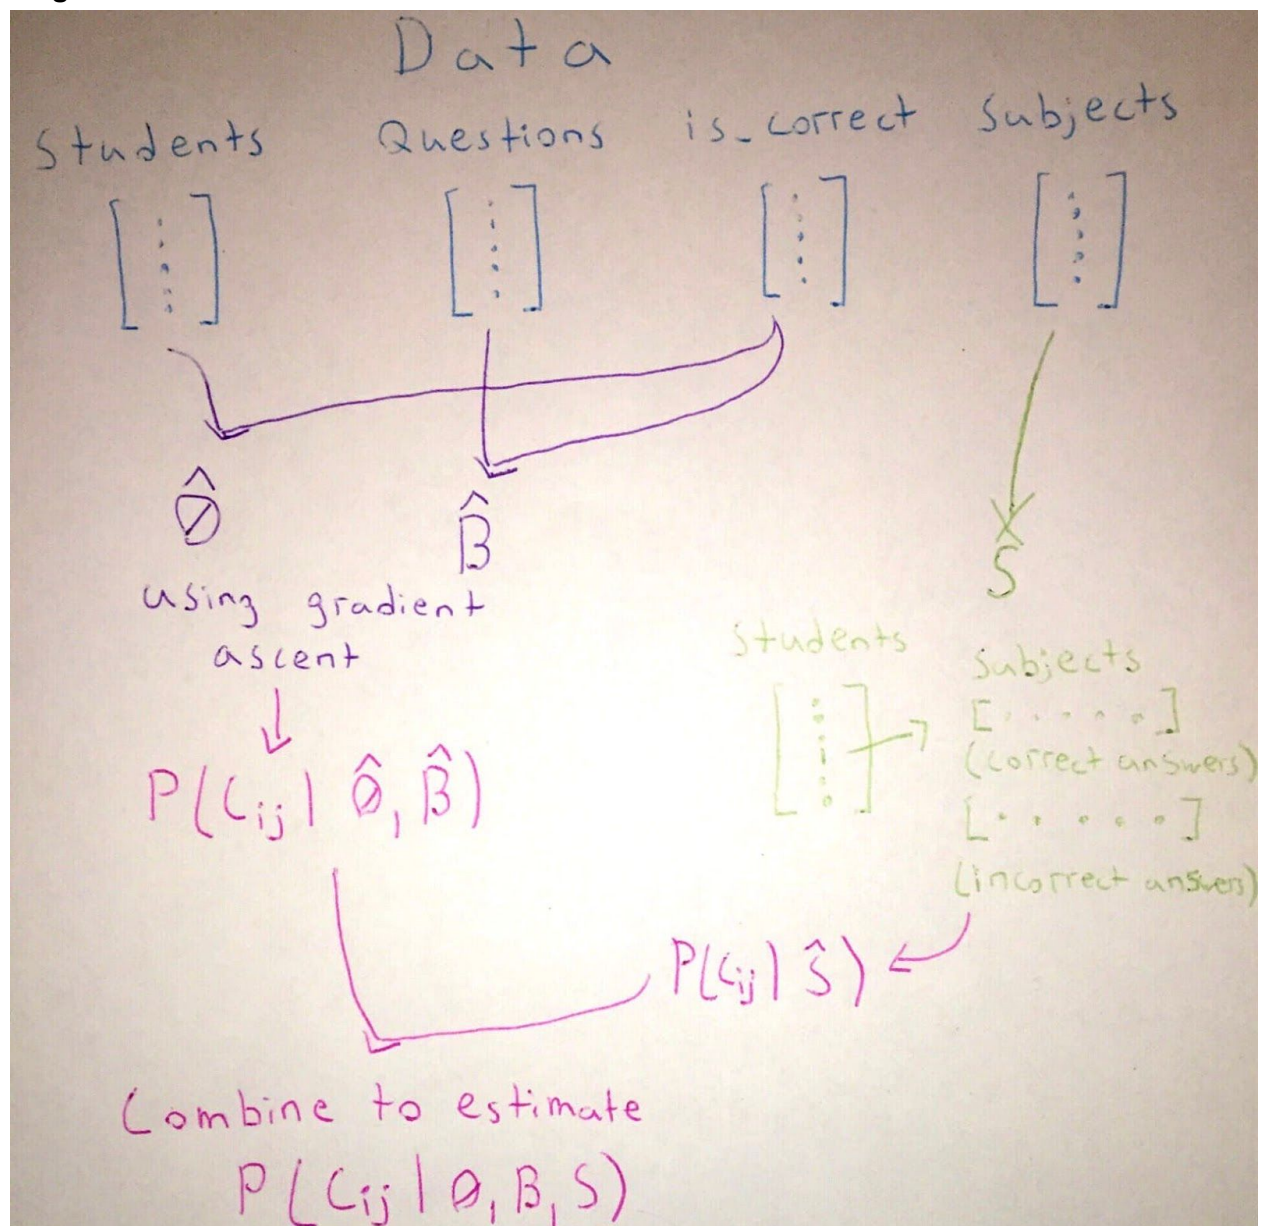 Data
Students Questions is_correct Subjects
θ̂ β̂ Ŝ
using gradient
ascent
Students
Subjects
(correct answers)
(incorrect answers)
P(Cij | θ̂, β̂)
P(Cij | Ŝ)
Combine to estimate
P(Cij | θ, β, S)